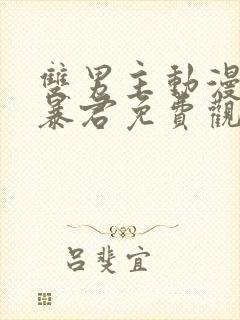 雙男主動漫
暴君免費觀
呂斐宜